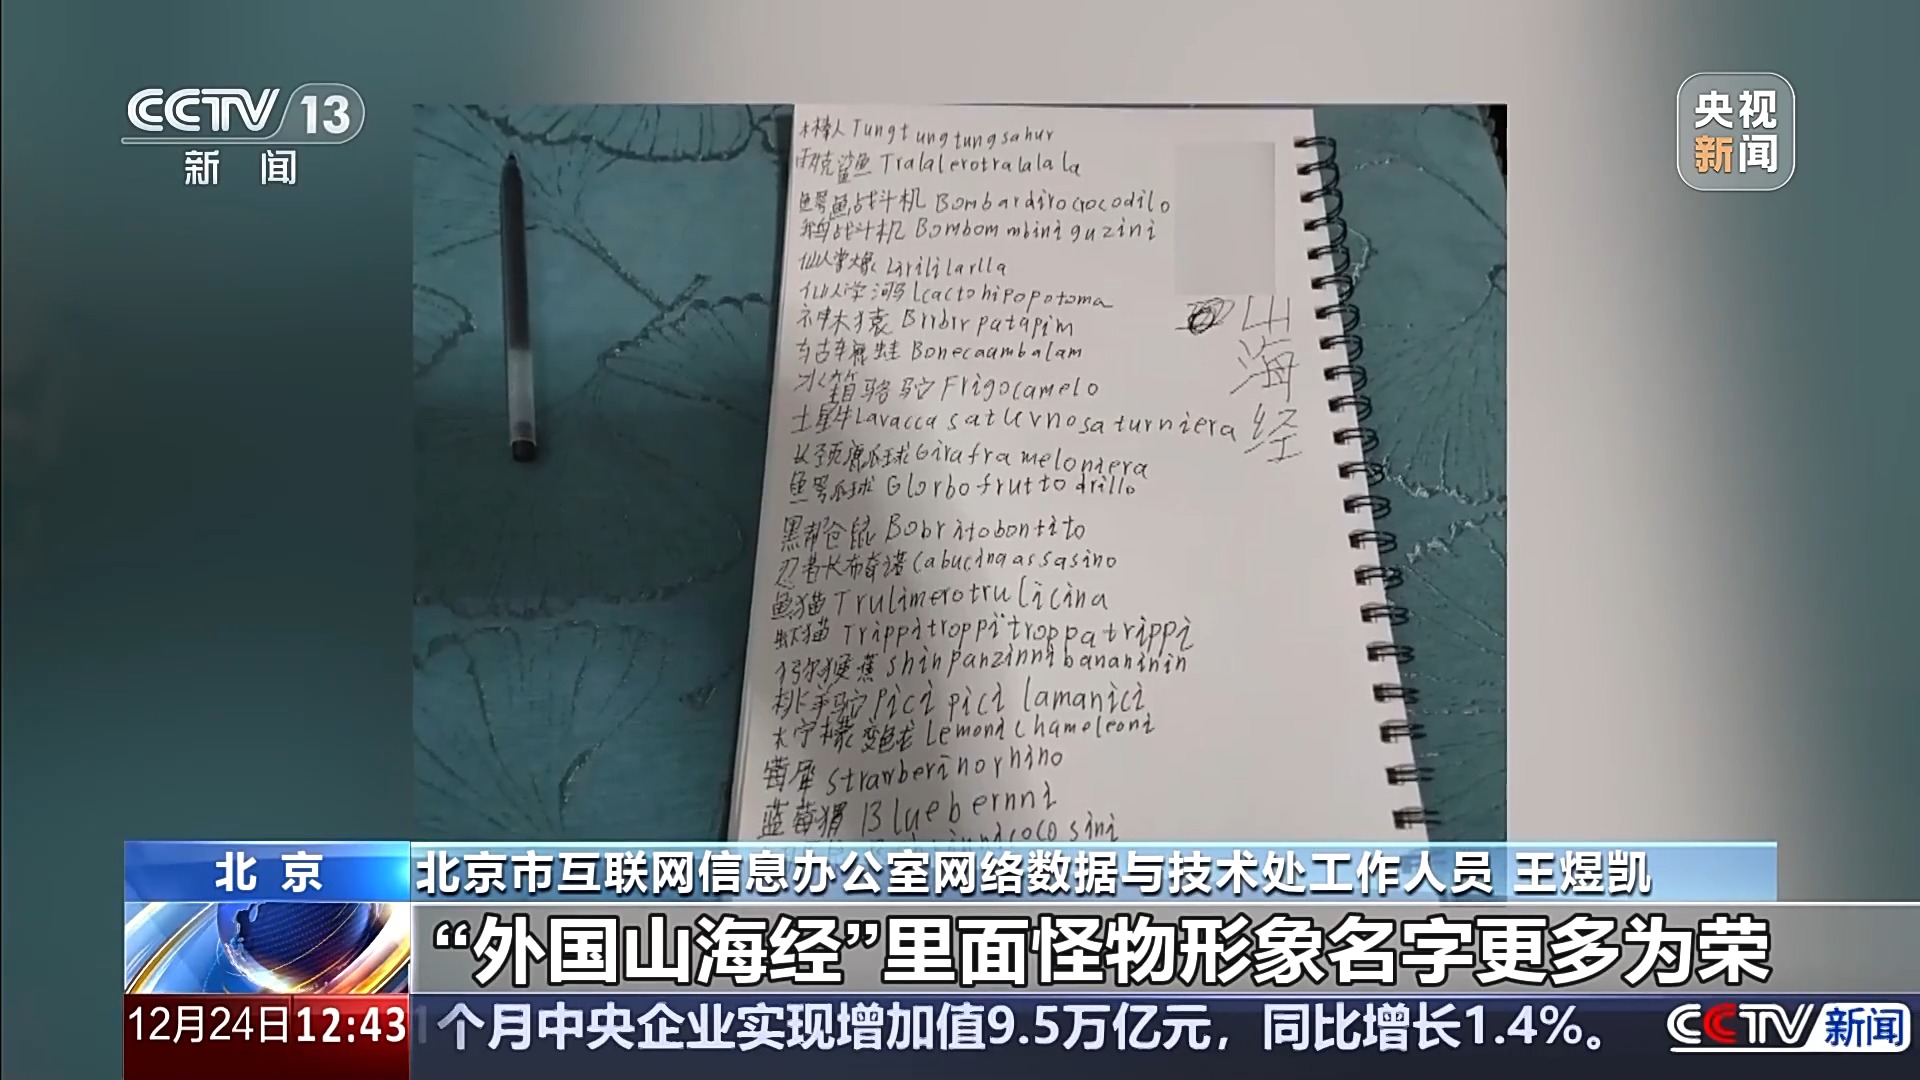 CCTV 13
新闻
央视
新闻
木棒人 Tungtungtungsahur
耐克鲨鱼 Tralalerotralalala
鳄鱼战斗机 Bombardirocrocodilo
鹅战斗机 Bombombiniguzini
仙人掌大象 Lirililarlla
仙人掌河马 Lcactohipopotoma
神木猿 Brrbrrpatapim
蛙 Bonecaambalam
冰箱骆驼 Frigocamelo
土星牛 Lavaccasaturnosaturniera
长颈鹿瓜球 Giraframeloniera
鱼鳄瓜球 Glorbofruttodrillo
黑帮仓鼠 Bobritobontito
忍者卡布奇诺 Cabucinaassasino
鱼猫 Trulimerotrulicina
虾猫 Trippitroppitroppatrippi
猕猴蕉 shinpanzinnibananinin
桃羊驼 Pici pici lamanici
柠檬变色龙 Lemonichameleoni
莓犀 strawberinorhino
蓝莓猬 Bluebernni
cocosini
山
海
经
北京
北京市互联网信息办公室网络数据与技术处工作人员 王煜凯
“外国山海经”里面怪物形象名字更多为荣
12月24日12:43
1个月中央企业实现增加值9.5万亿元，同比增长1.4%。
CCTV新闻